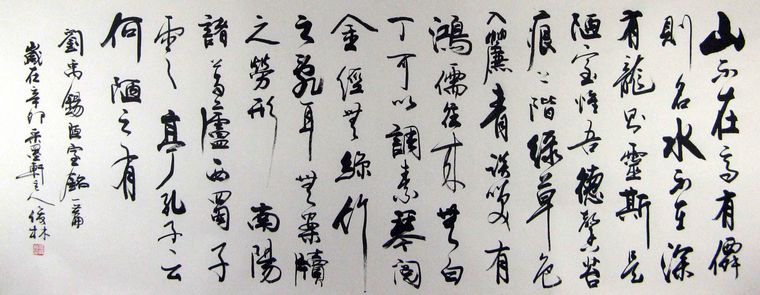 山不在高有僊
則名水不在深
有龍則靈斯是
陋室惟吾德馨苔
痕上階綠草色
入簾青談笑有
鴻儒往來無白
丁可以調素琴閱
金經無絲竹
之亂耳無案牘
之勞形 南陽
諸葛廬西蜀子
雲之亭孔子云
何陋之有
劉禹錫陋室銘一篇
歲在辛卯 墨軒主人俊林